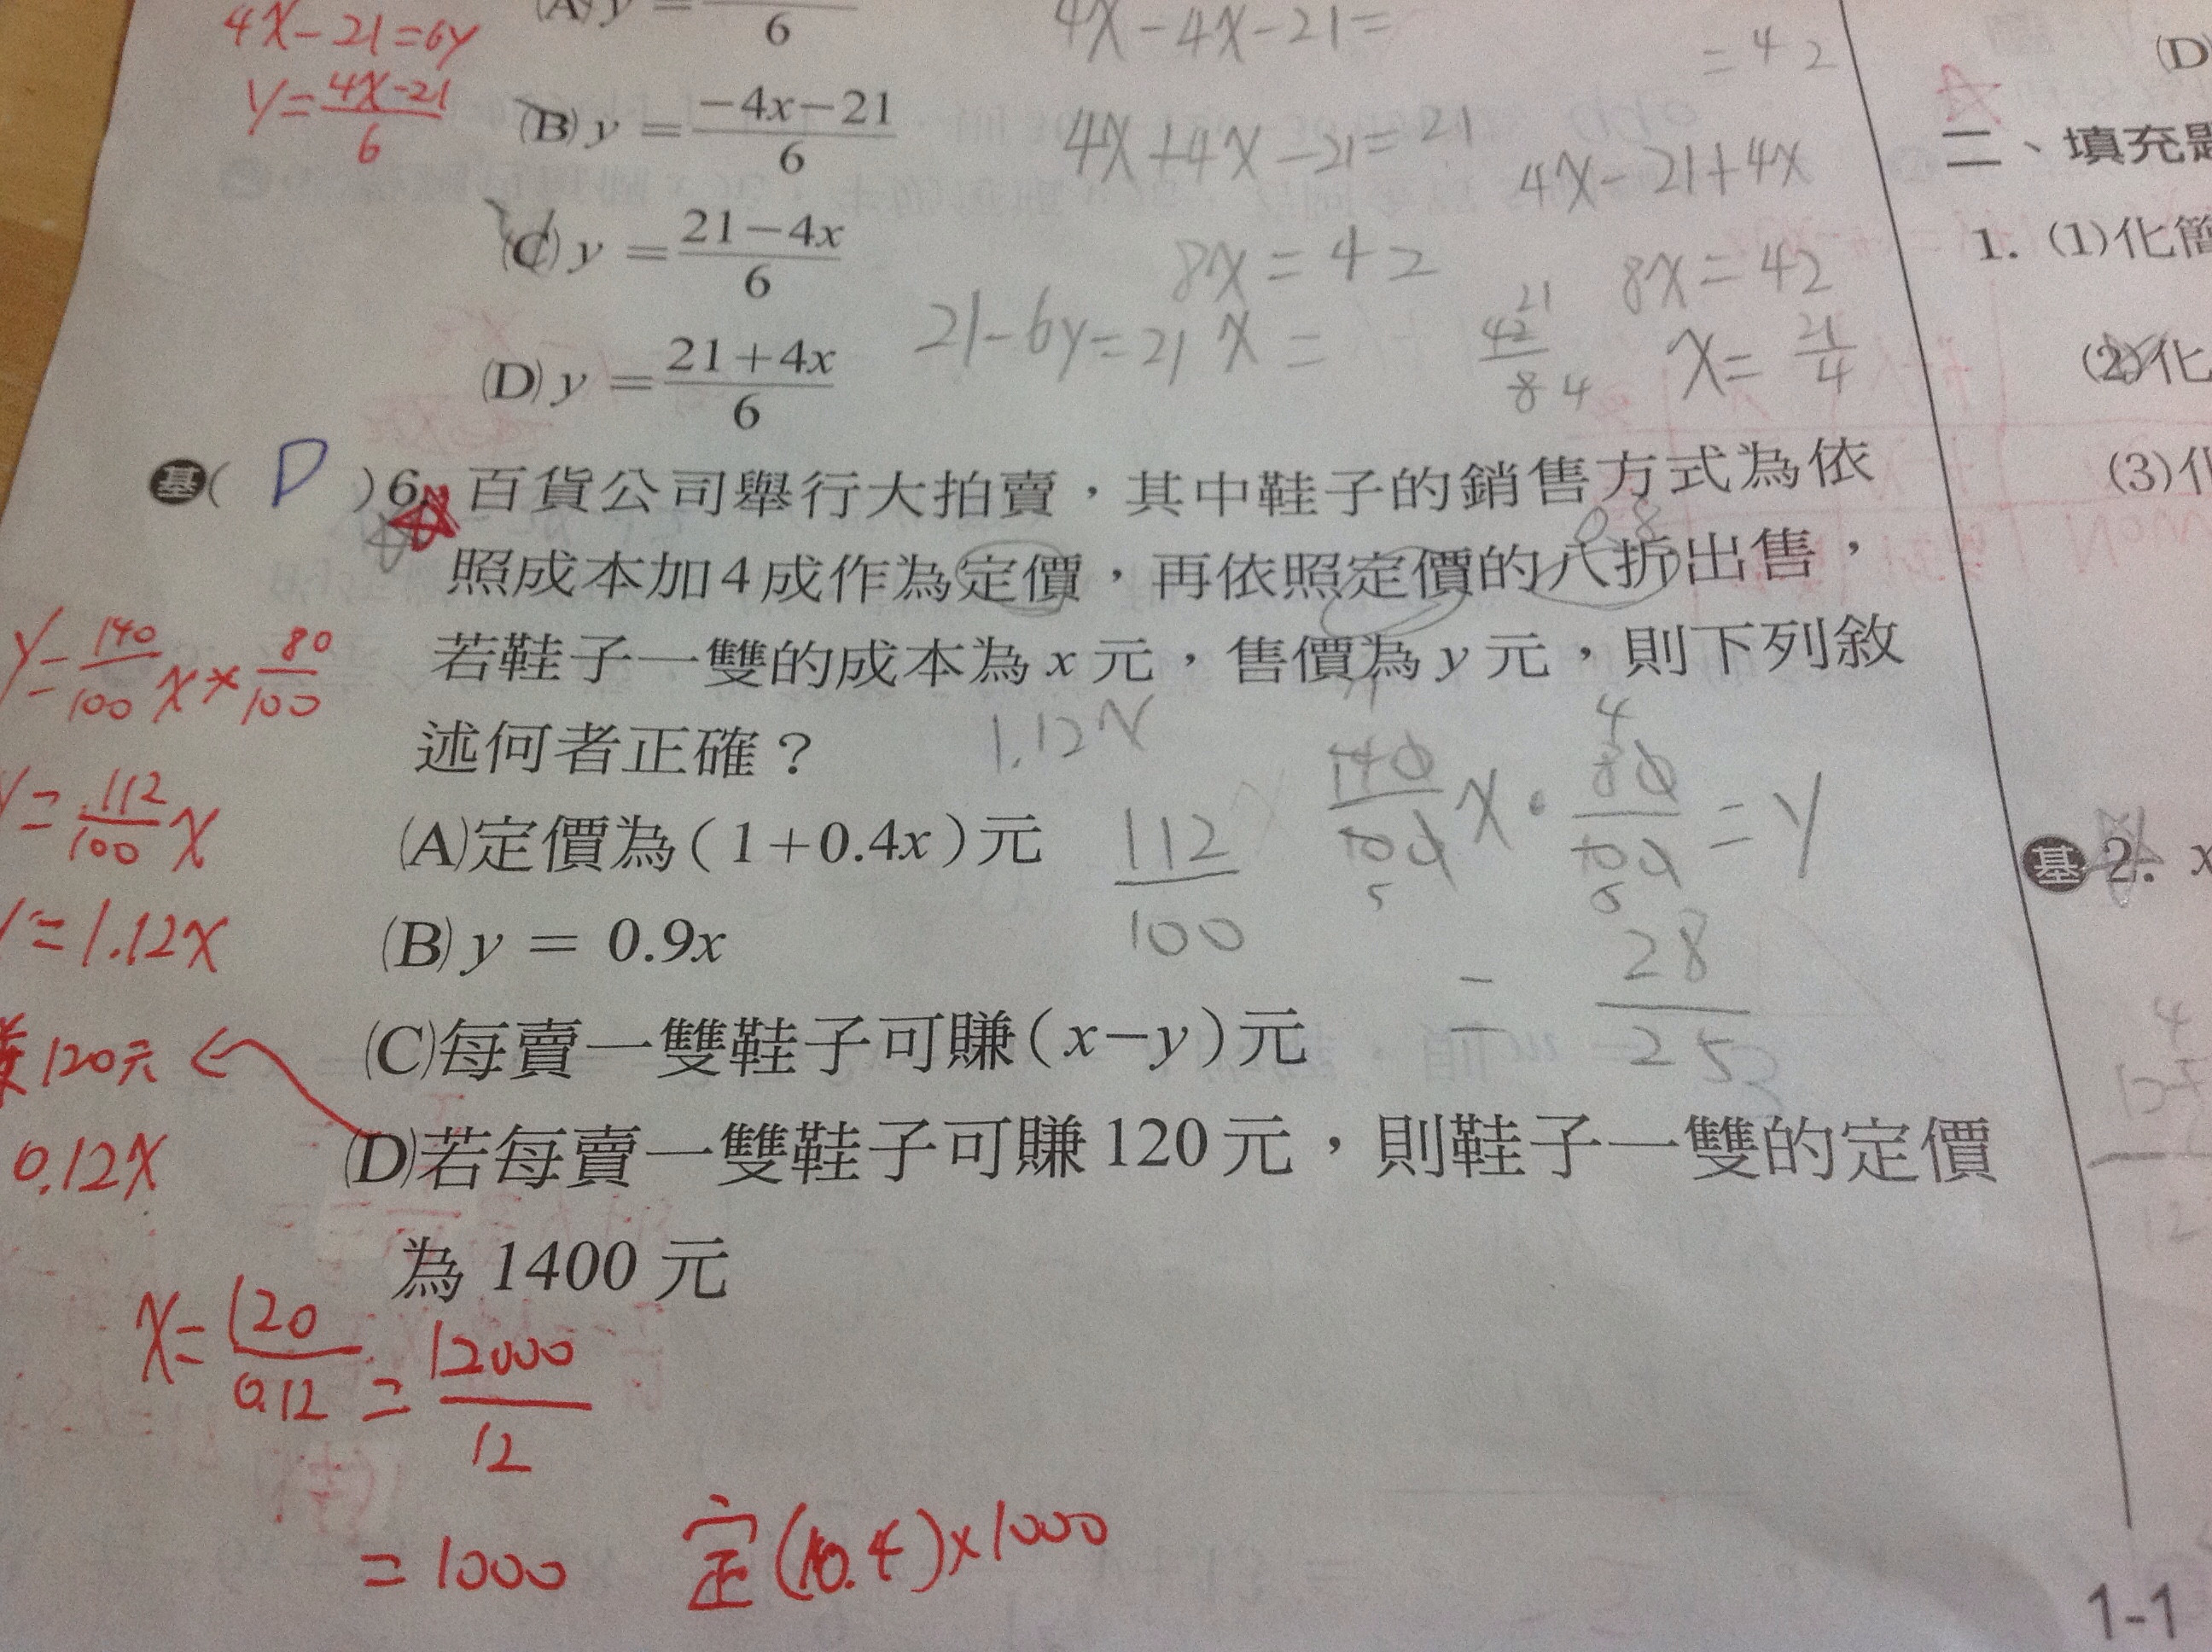 4x-21=6y
y=4x-21/6
(A) y = /6
(B) y = -4x-21/6
(C) y = 21-4x/6
(D) y = 21+4x/6
4x-4x-21=
4x+4x-21=21
8x=42
21-6y=21 x=
42/8 21 4
=42
4x-21+4x
8x=42
x=21/4
基( D )6. 百貨公司舉行大拍賣，其中鞋子的銷售方式為依
0.8
照成本加4成作為定價，再依照定價的八折出售，
若鞋子一雙的成本為 x 元，售價為 y 元，則下列敘
述何者正確？
(A)定價為(1+0.4x)元
(B) y = 0.9x
(C)每賣一雙鞋子可賺(x-y)元
(D)若每賣一雙鞋子可賺120元，則鞋子一雙的定價
為 1400 元
y=140/100 x×80/100
y=112/100 x
y=1.12x
120元
0.12x
x=120/0.12=12000/12
=1000
定 ×1000
1.12x
112/100
140/100 x·80/100=y
4
5
=28/25
(D)
二、填充題
1. (1)化簡
(2)化
(3)化
基 2. x
1-1